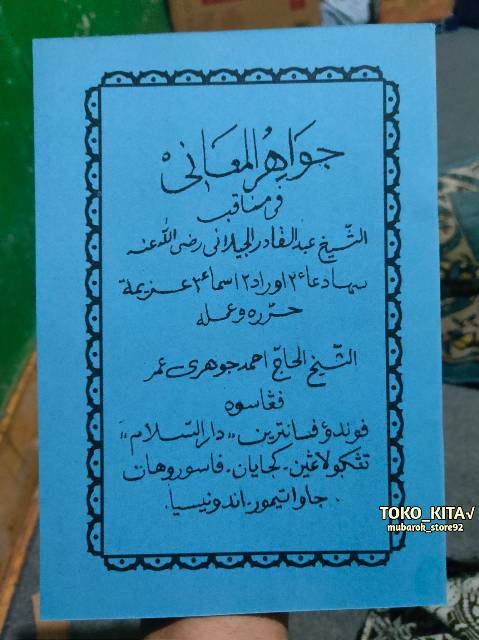 جَوَاهِرُ المَعَانِيْ
فى مناقب
الشّيخ عبد القادر الجيلانى رضى اللّٰه عنه
دعاء٢ اوراد٢ اسماء٢ عزيمة
حرّره وعمله
الشّيخ الحاجّ احمد جوهرى عمر
ڤڠاسوه
فوندؤ فسانترين „دار السّلام"
تڠڮولاڠين - كجايان - فاسوروهان
جاوا تيمور - اندونيسيا.
TOKO_KITA√
mubarok_store92